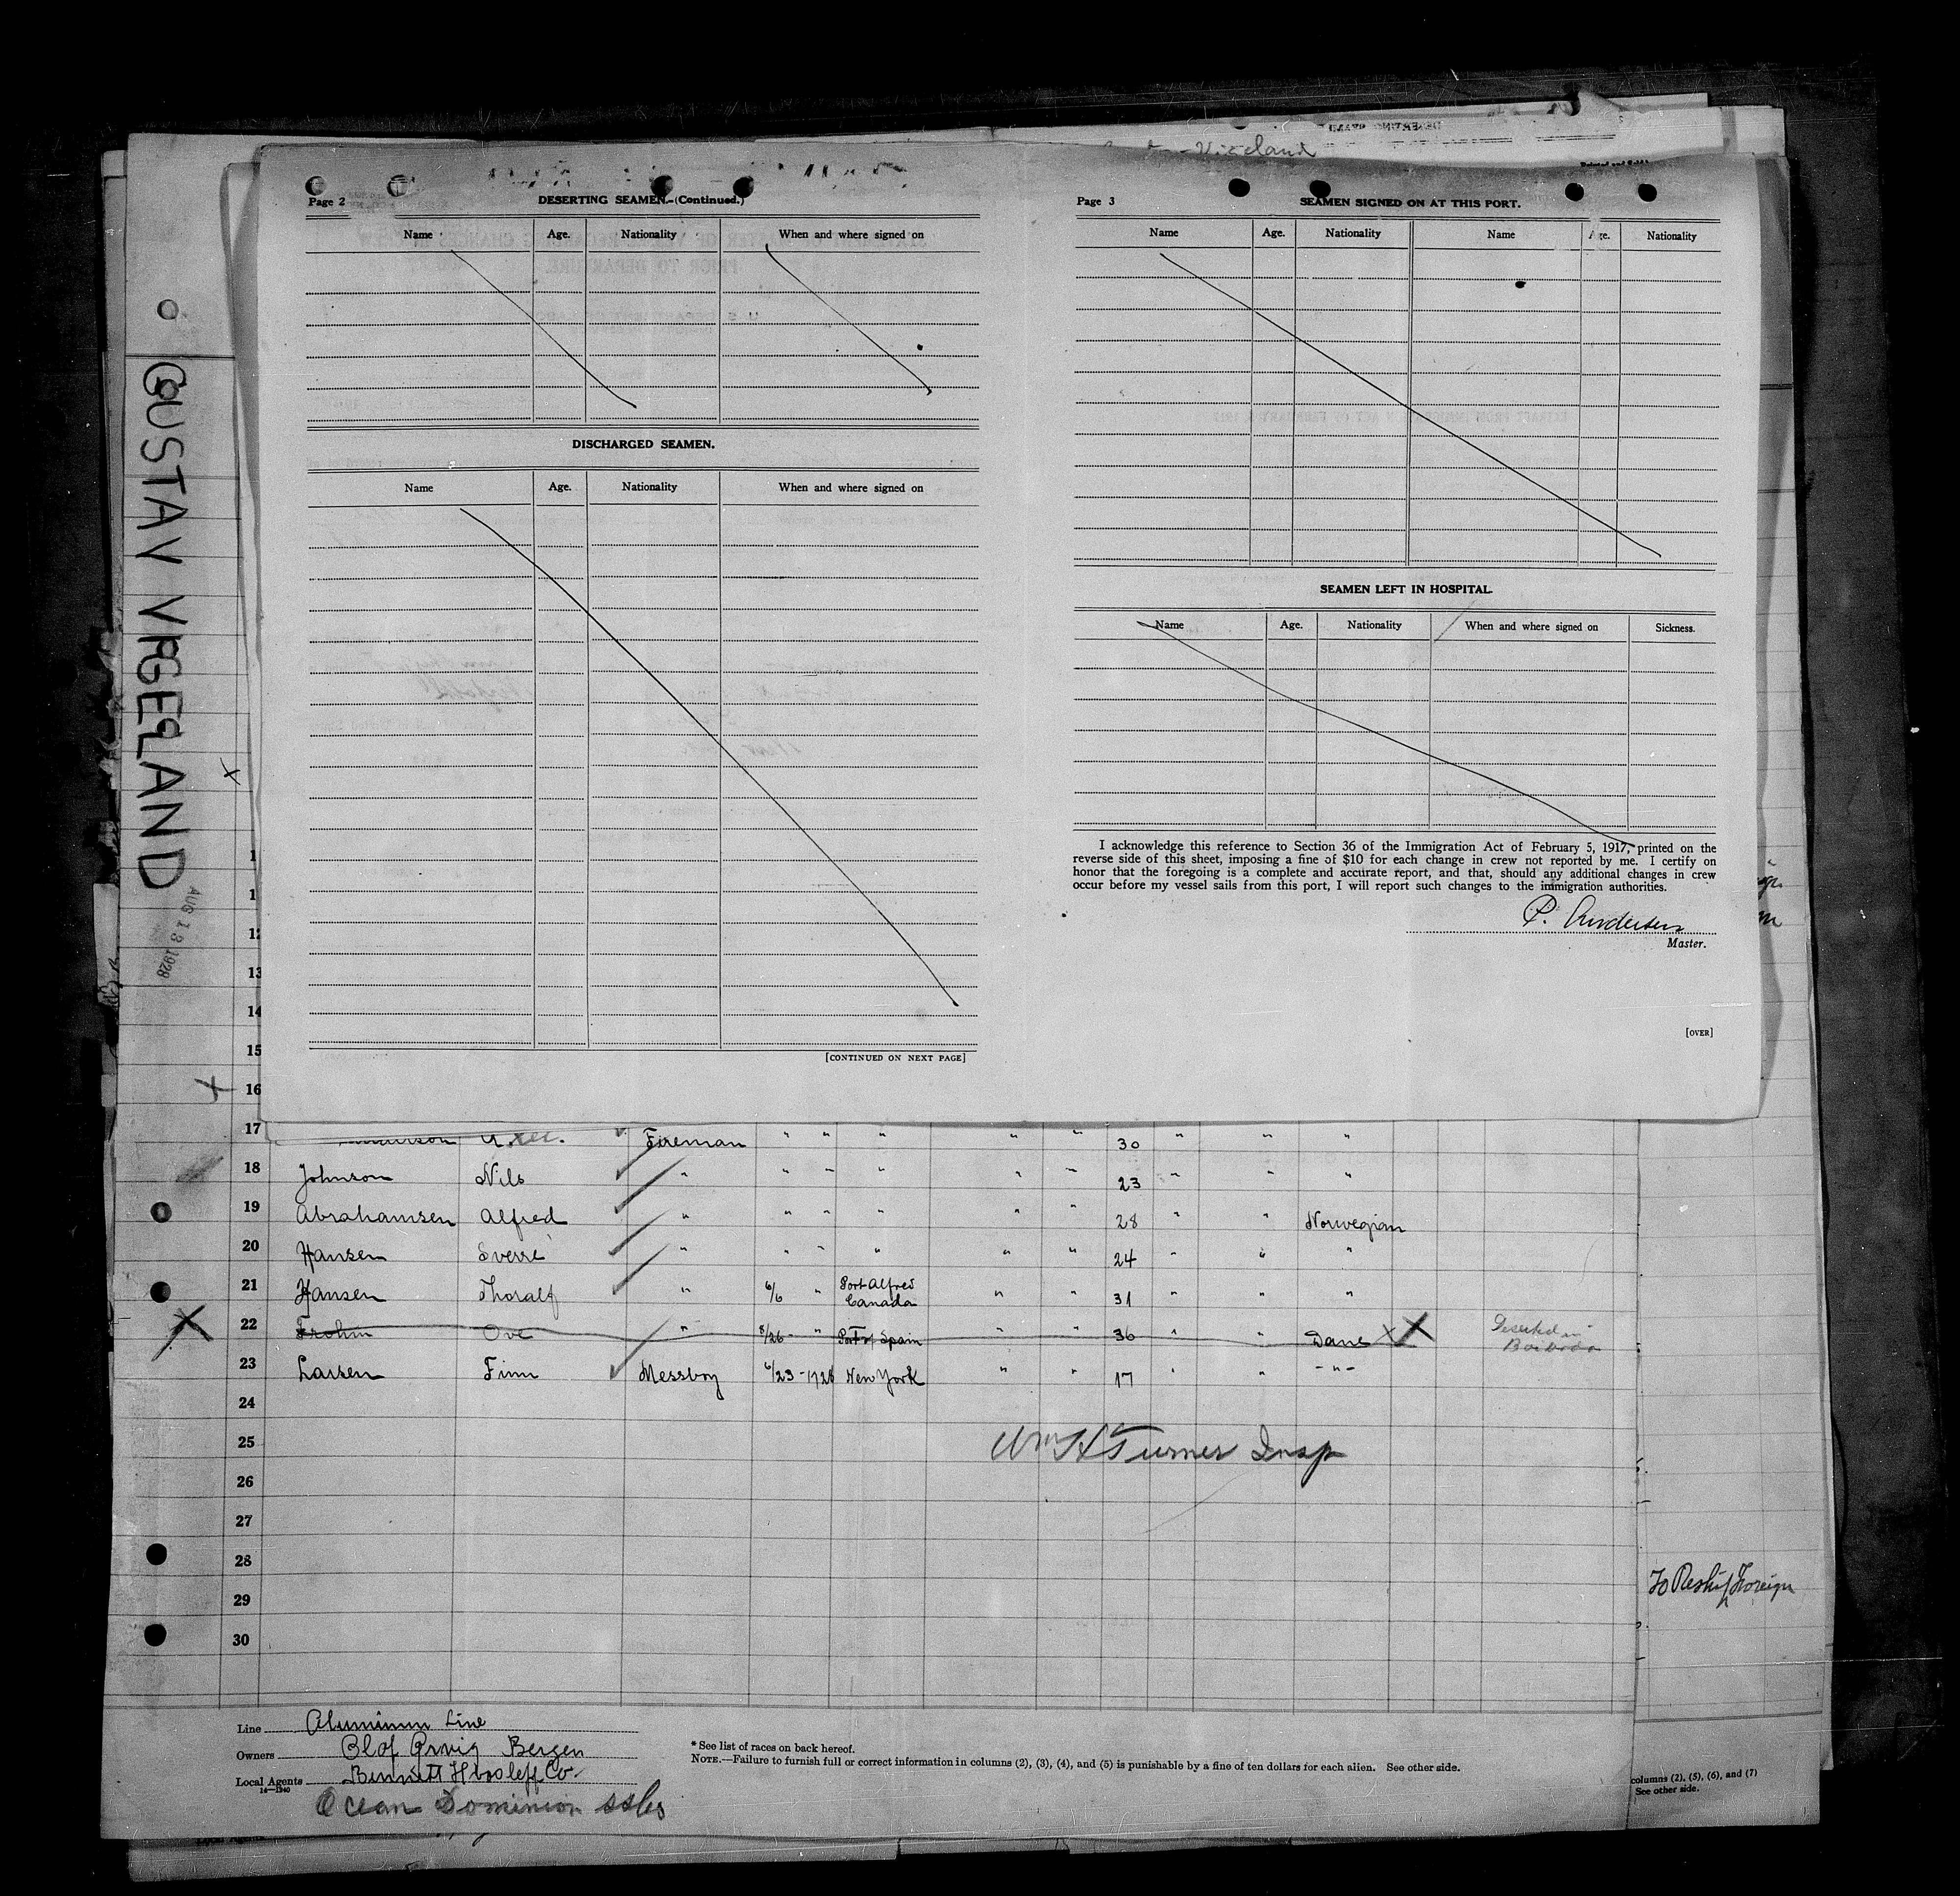 Vigeland
GUSTAV VIGELAND
AUG 13 1928
Page 2
DESERTING SEAMEN—(Continued.)
Name Age. Nationality When and where signed on
DISCHARGED SEAMEN.
Name Age. Nationality When and where signed on
[CONTINUED ON NEXT PAGE]
Page 3
SEAMEN SIGNED ON AT THIS PORT.
Name Age. Nationality Name Age. Nationality
SEAMEN LEFT IN HOSPITAL.
Name Age. Nationality When and where signed on Sickness.
I acknowledge this reference to Section 36 of the Immigration Act of February 5, 1917, printed on the
reverse side of this sheet, imposing a fine of $10 for each change in crew not reported by me. I certify on
honor that the foregoing is a complete and accurate report, and that, should any additional changes in crew
occur before my vessel sails from this port, I will report such changes to the immigration authorities.
P. Andersen
Master.
[OVER]
13
14
15
16
17 Axel Fireman " " " " " 30 " " "
18 Johnson Nils " " " " " " 23 " " "
19 Abrahamsen Alfred " " " " " " 28 " " Norwegian
20 Hansen Sverre " " " " " " 24 " " "
21 Hansen Thoralf " 6/6 " Port Alfred Canada " " 31 " " "
22 Frohm Ove " 8/26 - " Port of Spain " " 36 " " Dane X X Deserted in Barbados
23 Larsen Finn Messboy 6/23 - 1928 New York " " 17 " " - " -
24
25 Wm H Turner Insp
26
27
28
29
30
To Reship Foreign
Line Aluminum Line
Owners Olof Orvig Bergen
Local Agents Bennett Hvoslef Co.
14—1240
Ocean Dominion SS Co
* See list of races on back hereof.
NOTE.—Failure to furnish full or correct information in columns (2), (3), (4), and (5) is punishable by a fine of ten dollars for each alien. See other side.
columns (2), (5), (6), and (7)
See other side.